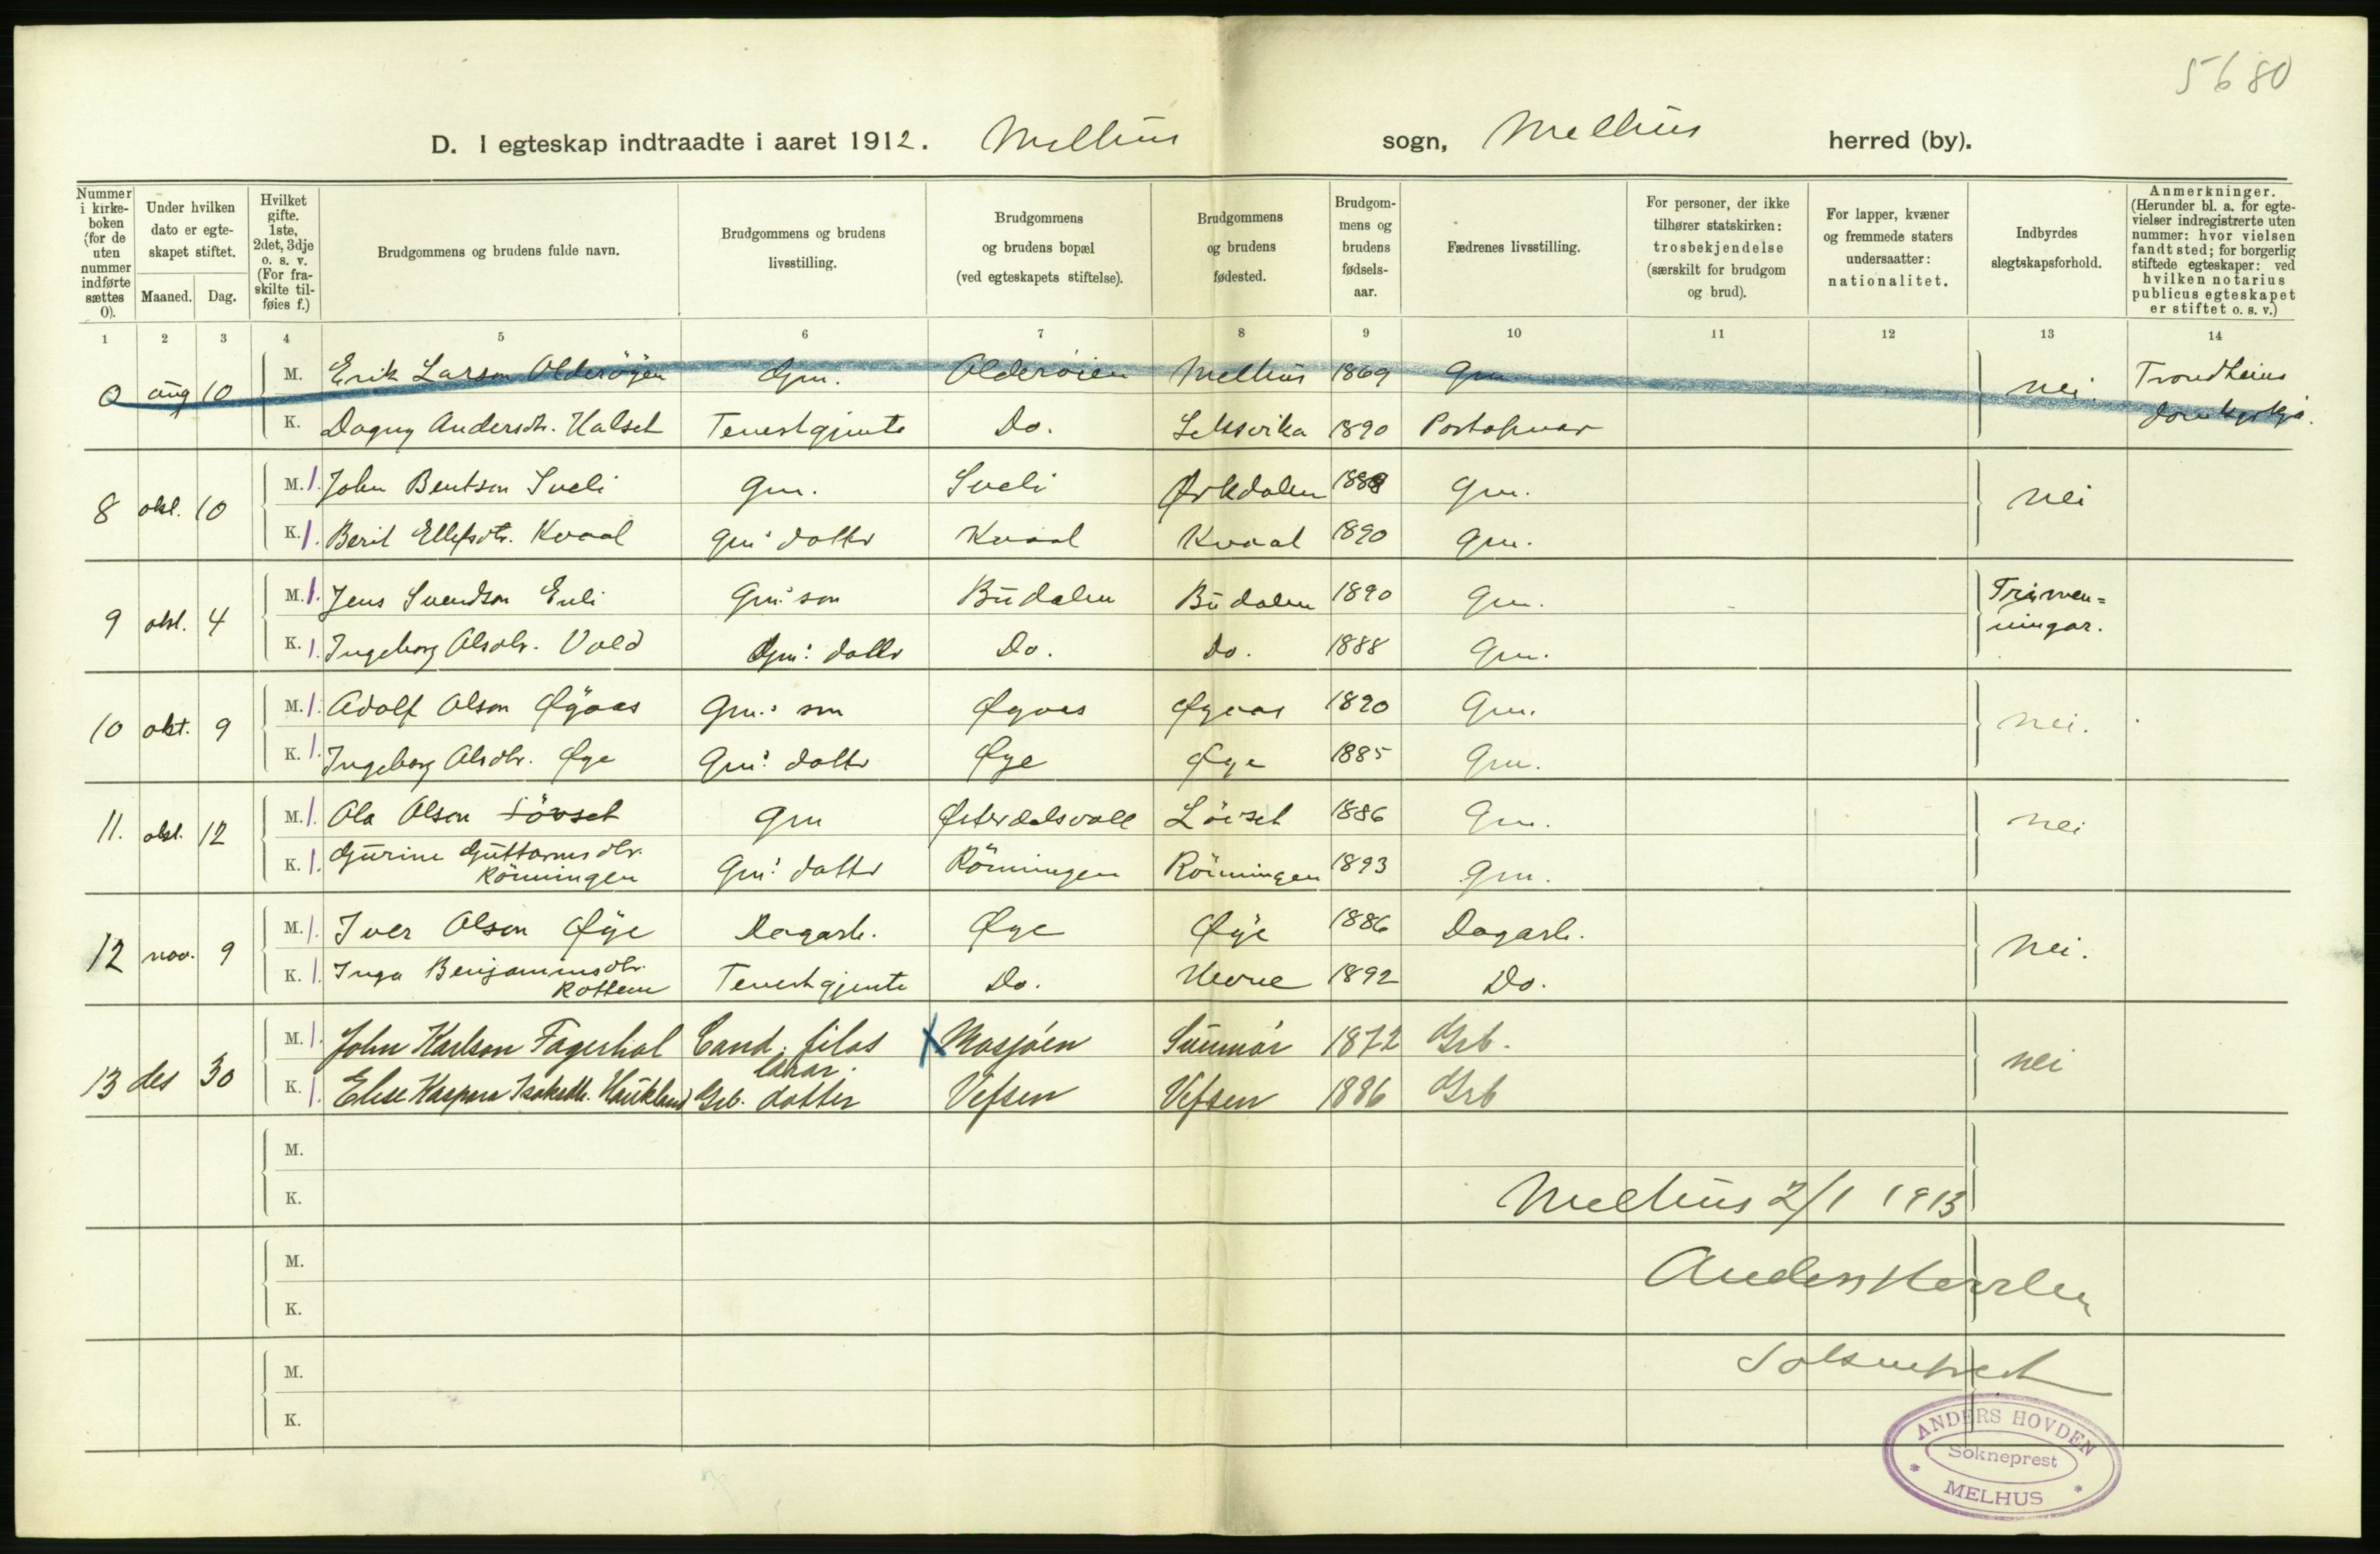 5680
D. I egteskap indtraadte i aaret 1912. Melhus sogn, Melhus herred (by).
Nummer i kirke- boken (for de uten nummer indførte sættes 0).
Under hvilken dato er egte- skapet stiftet.
Maaned. Dag.
Hvilket gifte. 1ste, 2det, 3dje o. s. v. (For fra- skilte til- føies f.)
Brudgommens og brudens fulde navn.
Brudgommens og brudens livsstilling.
Brudgommens og brudens bopæl (ved egteskapets stiftelse).
Brudgommens og brudens fødested.
Brudgom- mens og brudens fødsels- aar.
Fædrenes livsstilling.
For personer, der ikke tilhører statskirken: trosbekjendelse (særskilt for brudgom og brud).
For lapper, kvæner og fremmede staters undersaatter: nationalitet.
Indbyrdes slegtskapsforhold.
Anmerkninger. (Herunder bl. a. for egte- vielser indregistrerte uten nummer: hvor vielsen fandt sted; for borgerlig stiftede egteskaper: ved hvilken notarius publicus egteskapet er stiftet o. s. v.)
1 2 3 4 5 6 7 8 9 10 11 12 13 14
0 aug 10 M. Erik Larson Olderöyen Gm. Olderöien Melhus 1869 Gm nei. Trondheims
K. Dagny Andersdtr. Halset Tenestgjente Do. Leksvika 1890 domkyrkja.
8 okt. 10 M. 1. John Bentson Sveli Gm. Sveli Ørkdalen 1888 Gm. nei
K. 1. Berit Ellefsdtr. Kvaal Gm: dotter Kvaal Kvaal 1890 Gm.
9 okt. 4 M. 1. Jens Svendson Enli Gm: son Budalen Budalen 1890 Gm. Trimen=
ningar.
K. 1. Ingeborg Olsdtr. Vold Gm: dotter Do. Do. 1888 Gm.
10 okt. 9 M. 1. Adolf Olson Øyaas Gm: son Øyaas Øyaas 1890 Gm. nei.
K. 1. Ingeborg Olsdtr. Øye Gm: dotter Øye Øye 1885 Gm.
11. okt. 12 M. 1. Ola Olson Lövset Gm Østerdalsvoll Lövset 1886 Gm. nei
K. 1. Gurine Guttormsdtr.
Rönningen Gm: dotter Rönningen Rönningen 1893 Gm.
12 nov. 9 M. 1. Iver Olson Øye Dagarb. Øye Øye 1886 Dagarb. nei.
K. 1. Inga Benjaminsdtr.
Rottem Tenestgjente Do. Hevne 1892 Do.
13 des 30 M. 1. John Karlson Fagerhol Cand. filos X Mosjöen Sunmör 1872 Grb. nei
lærar.
K. 1. Elise Kaspara Isaksdtr. Haukland Grb. dotter Vefsen Vefsen 1886 Grb
M.
K.
Melhus 2/1 1913
M.
Anders Hovden
K.
Sokneprest
M.
K.
ANDERS HOVDEN
Sokneprest
* MELHUS *